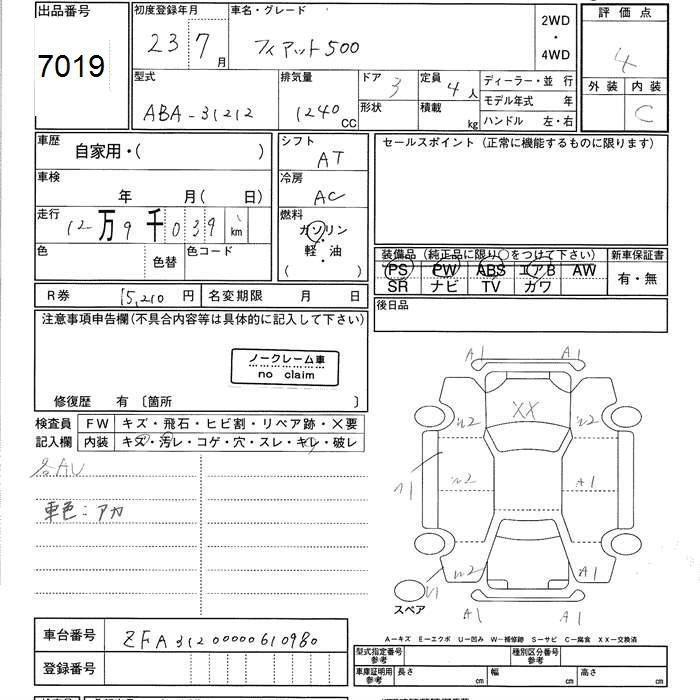 出品番号
7019
初度登録年月
23 7 月
車名・グレード
フィアット500
2WD
・
4WD
評価点
4
外装 内装
C
型式
ABA-31212
排気量
1240 CC
ドア 3
形状
定員 4 人
積載 kg
ディーラー・並 行
モデル年式 年
ハンドル 左・右
車歴
自家用・( )
シフト
AT
セールスポイント(正常に機能するものに限ります)
車検
年 月( 日)
冷房
AC
走行
12万9千039 km
燃料
ガソリン
・
軽・油
( )
色 色替
色コード
装備品(純正品に限り○をつけて下さい)
新車保証書
PS PW ABS エアB AW
SR ナビ TV カワ
有・無
R券 15,210 円
名変期限 月 日
後日品
注意事項申告欄(不具合内容等は具体的に記入して下さい)
ノークレーム車
no claim
修復歴 有 〔箇所 〕
検査員
記入欄
FW キズ・飛石・ヒビ割・リペア跡・×要
内装 キズ・汚レ・コゲ・穴・スレ・キレ・破レ
各AU
車色:アカ
A1 A1
XX
W2 W2
W2 A1
W2 A1
A1 A1
スペア
A-キズ E-エクボ U-凹み W-補修跡 S-サビ C-腐食 XX-交換済
車台番号
ZFA31200000610980
登録番号
型式指定番号
参考
種別区分番号
参考
車庫証明用
参考
長さ cm
幅 cm
高さ cm